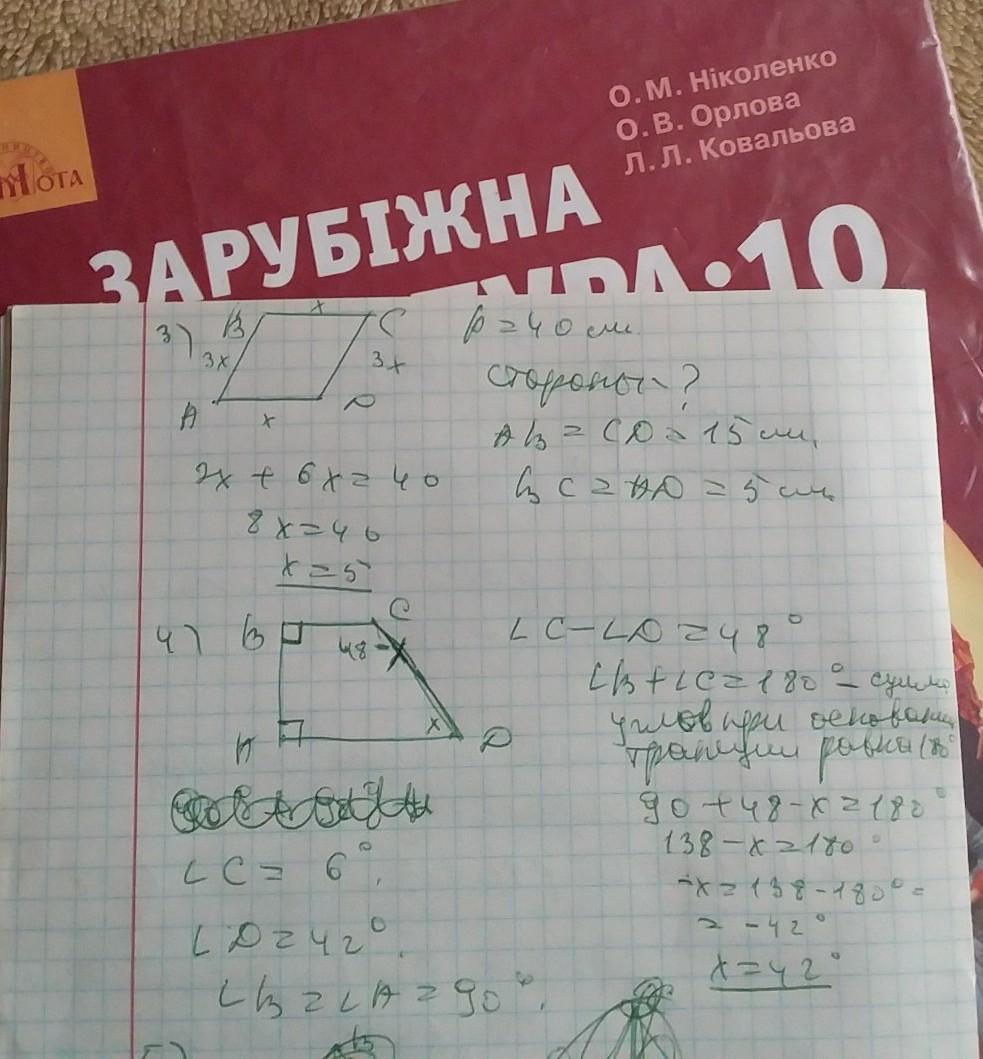 О. М. Ніколенко
О. В. Орлова
Л. Л. Ковальова
ОТА
ЗАРУБІЖНА
ТУРА·10
3)
B x C
3x 3x
A x D
p = 40 см.
стороны - ?
AB = CD = 15 см.
BC = AD = 5 см.
2x + 6x = 40
8x = 40
x = 5
4)
B C
48-x
x
A D
∠C - ∠D = 48°
∠B + ∠C = 180° - сумма
углов при основании
трапеции равна 180°
90 + 48 - x = 180°
138 - x = 180°
-x = 138 - 180° =
= -42°
x = 42°
∠C = 6°.
∠D = 42°.
∠B = ∠A = 90°.
5)
B